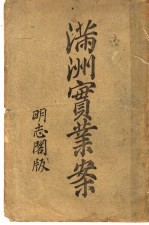 滿洲實業案
明志閣版